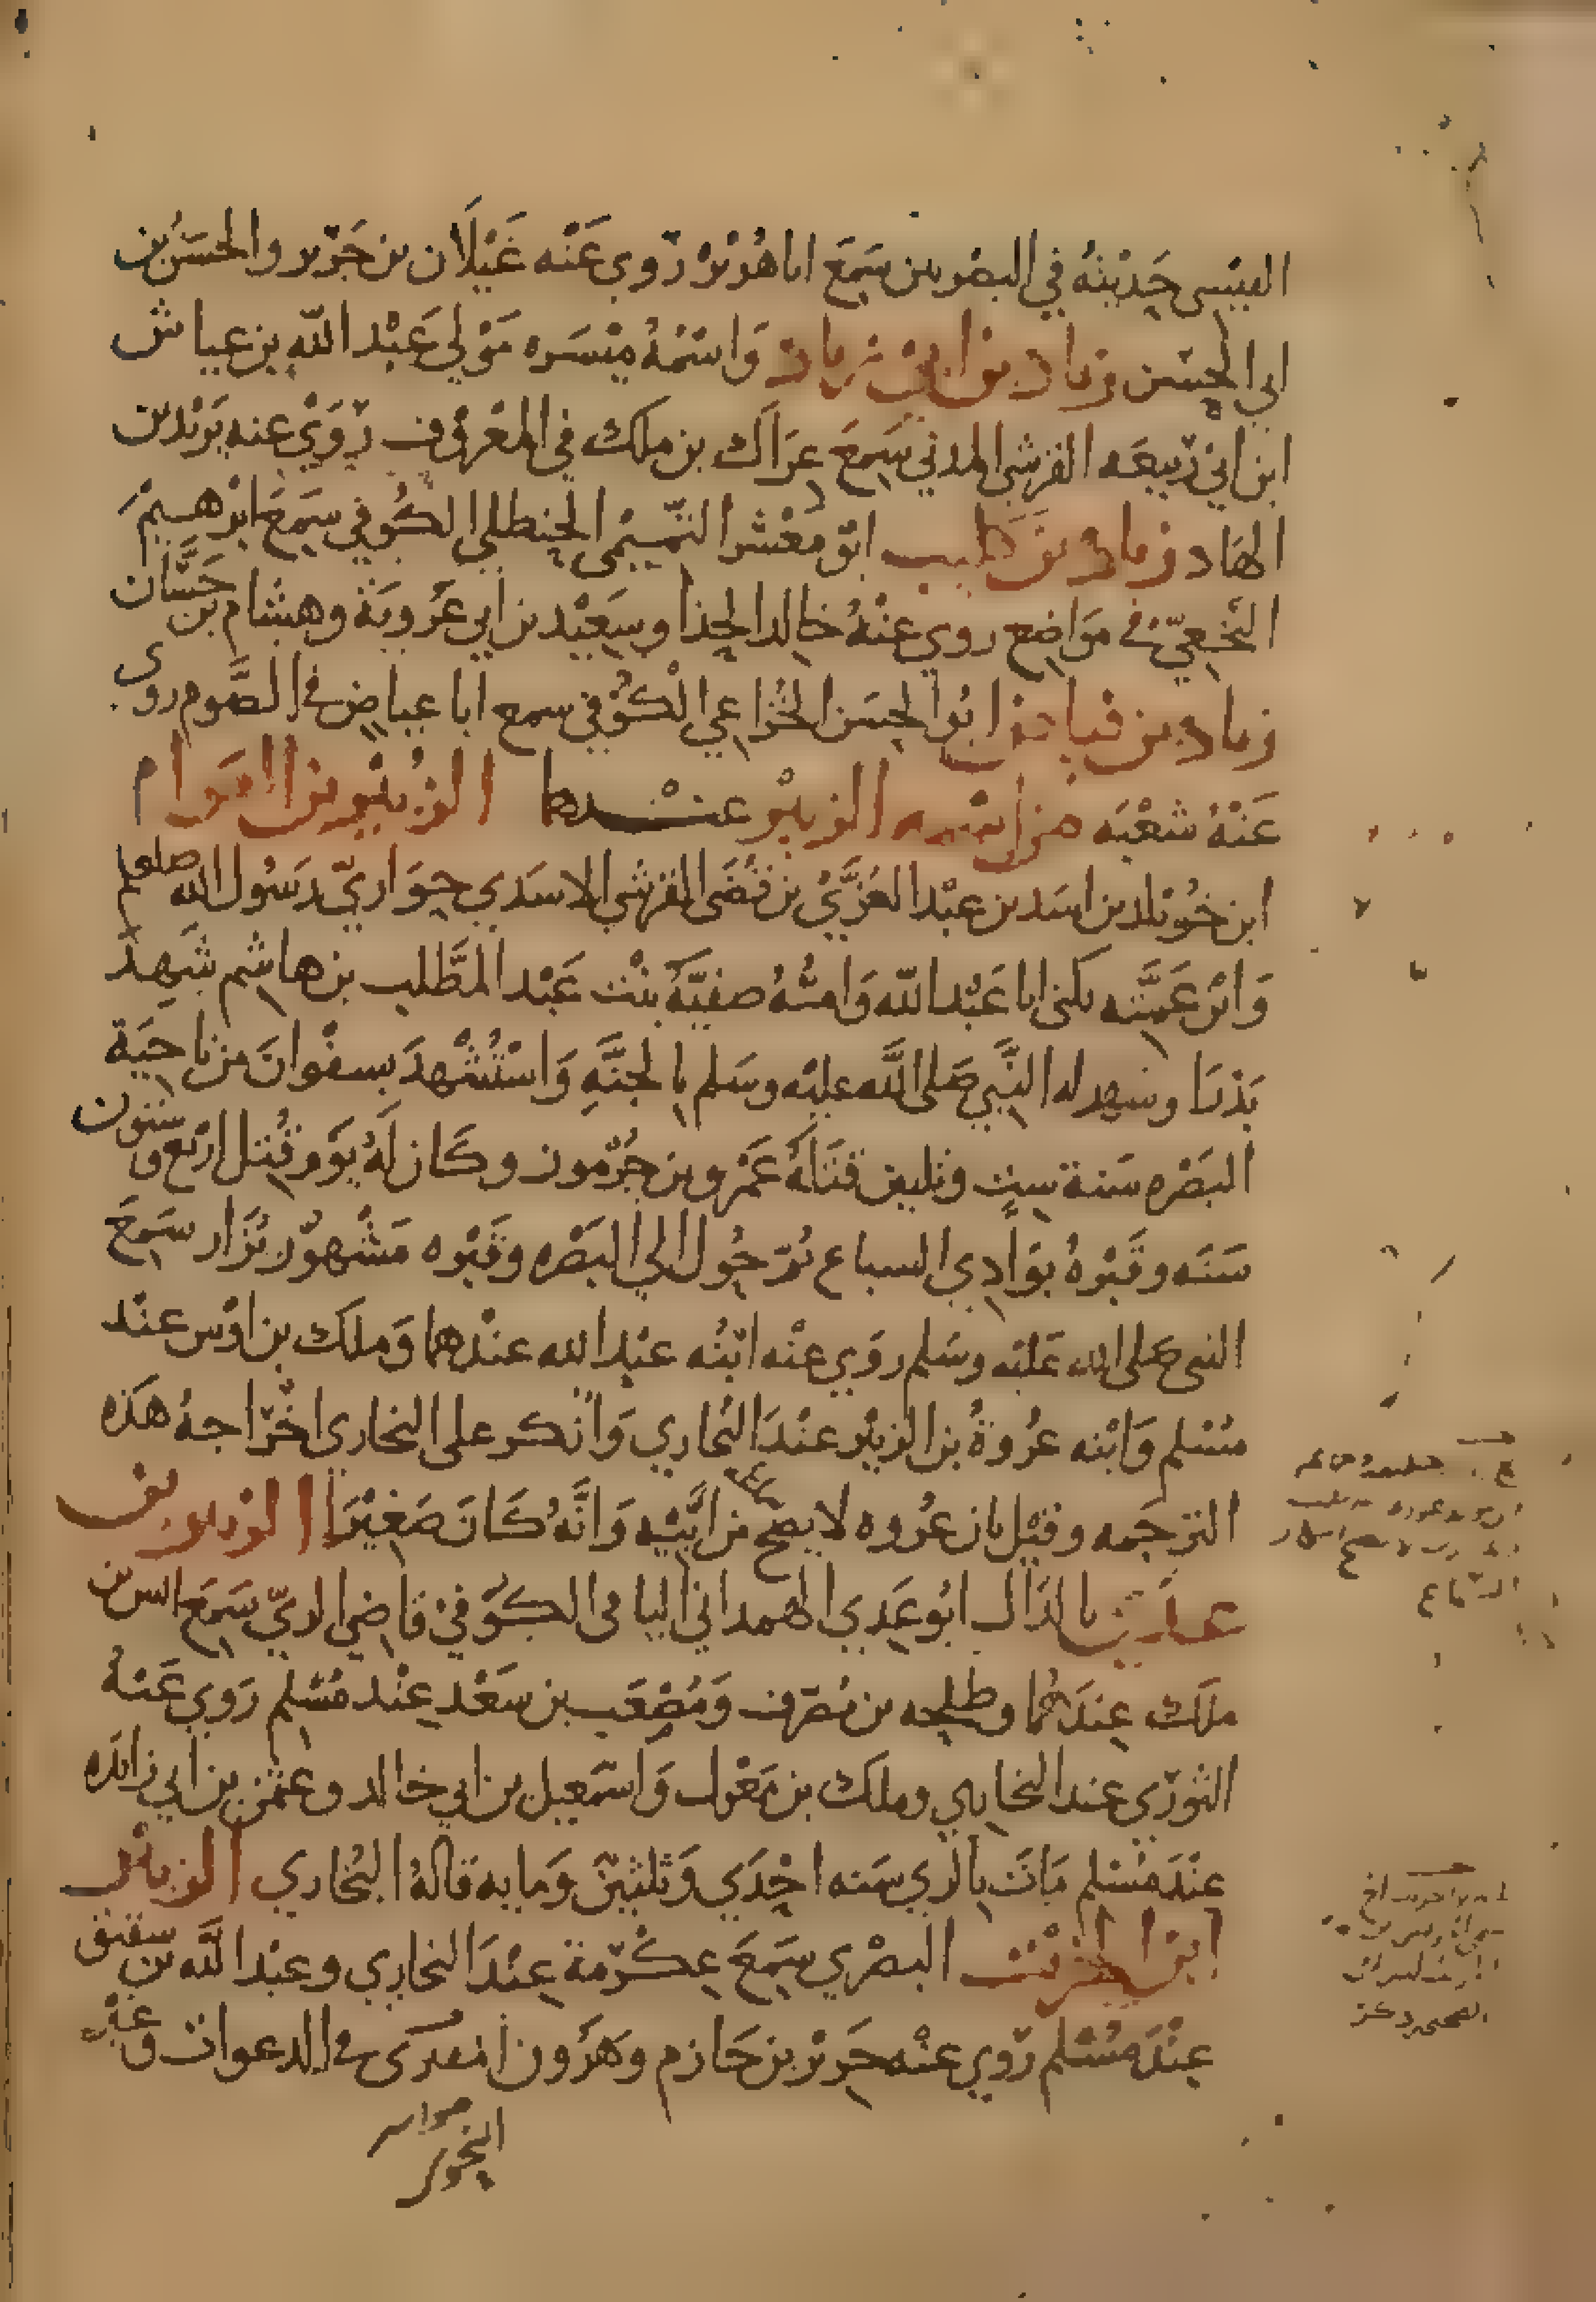 القيسي حديثه في البصريين سَمِعَ ابا هُريرة رَوي عَنْه غَيْلَان بن جَرير والحسَن بن
ابي الحسن زياد بن ابي زياد وَاسْمُهُ مَيْسَره مَوْلى عَبْد الله بن عياش
ابن ابي رَبيعَه القرشي المدني سَمِعَ عِرَاك بن ملك في المعْروف رَوَي عنه يَزيد بن
الهَاد زياد بن كليب ابو مَعْشر التَّميْمي الحنظلي الكُوفي سَمِعَ ابْرهيم
النَّخعيّ في مَوَاضع روي عنْهُ خالد الحذا وسَعيْد بن ابي عَرُوبَة وهشام بن حَسَّان
زياد بن فياض ابُوا الحسَن الخُزاعي الْكُوْفي سمع ابا عياض في الصَّوم روى
عَنْهُ شعْبَه من اسْمه الزبيْر عنْدهما الزُبيْر بن العَوام
ابن خُوَيْلد بن اسَد بن عبْد العُزَّيُ بن قُصَى القرشي الاسَدي حِوَاريّ رَسُول الله صلعم
وَابْن عَمَّته يكنى ابا عَبْد الله وَامّهُ صفيَّةُ بنْت عَبْد المطَّلب بن هاشم شَهِدَ
بَدْرًا وشهد له النَّبي صَلى اللَّه عليْه وسَلم بالجنَّةِ وَاسْتُشْهِدَ بسفْوانَ من ناحيَة
البَصْره سَنة سِتٍ وثلثين قتَلَهُ عَمْرو بن جُرْمُوز وكَان لَهُ يَوْم قُتل ارْبع وستون
سَنَه وقَبْرهُ بوَادِي السباع ثمّ حُول الي البَصْره وقَبْره مَشْهوْر يُزَار سَمِعَ
النبي صَلى الله عَليْه وسَلم رَوَي عنْه ابْنُه عبْد الله عنْدهما وَملك بن اوْس عنْد
مسْلم وَابْنه عرُوَةُ بن الزبيْر عنْدَ البُخاري وَأنْكر على البخاري اخْراجهُ هَذه
الترجَمه وقيْل بان عرُوه لا يصح سماعه من ابَيْه وَانَّهُ كَانَ صَغيْرًا الزبير بن
عدي بالدَال ابُو عَدي الهمداني اليامي الكوْفي قاضي الريّ سَمِعَ انس بن
ملك عندَهُما وطلحه بن مُصَرف وَمُصْعَب بن سَعْد عنْد مُسْلم رَوي عَنهُ
الثوْرّي عند البخاري وملك بن مغول وَاسْمعيل بن ابي خالد وعثمن بن ابي زائدَه
عنْدَ مُسْلم مَاتَ بالري سَنه احْدَي وَثلثيْن وَمايه قالهُ البُخاري الزبيْر
ابن الخريْت البصْري سَمِعَ عِكْرمة عِندَ البخاري وعبْد اللَّه بن شقيق
عنْدَ مسْلم رَوي عنْه جَريْر بن حَازم وهَرُون المقرى في الدعوات وغيْره
النحوي